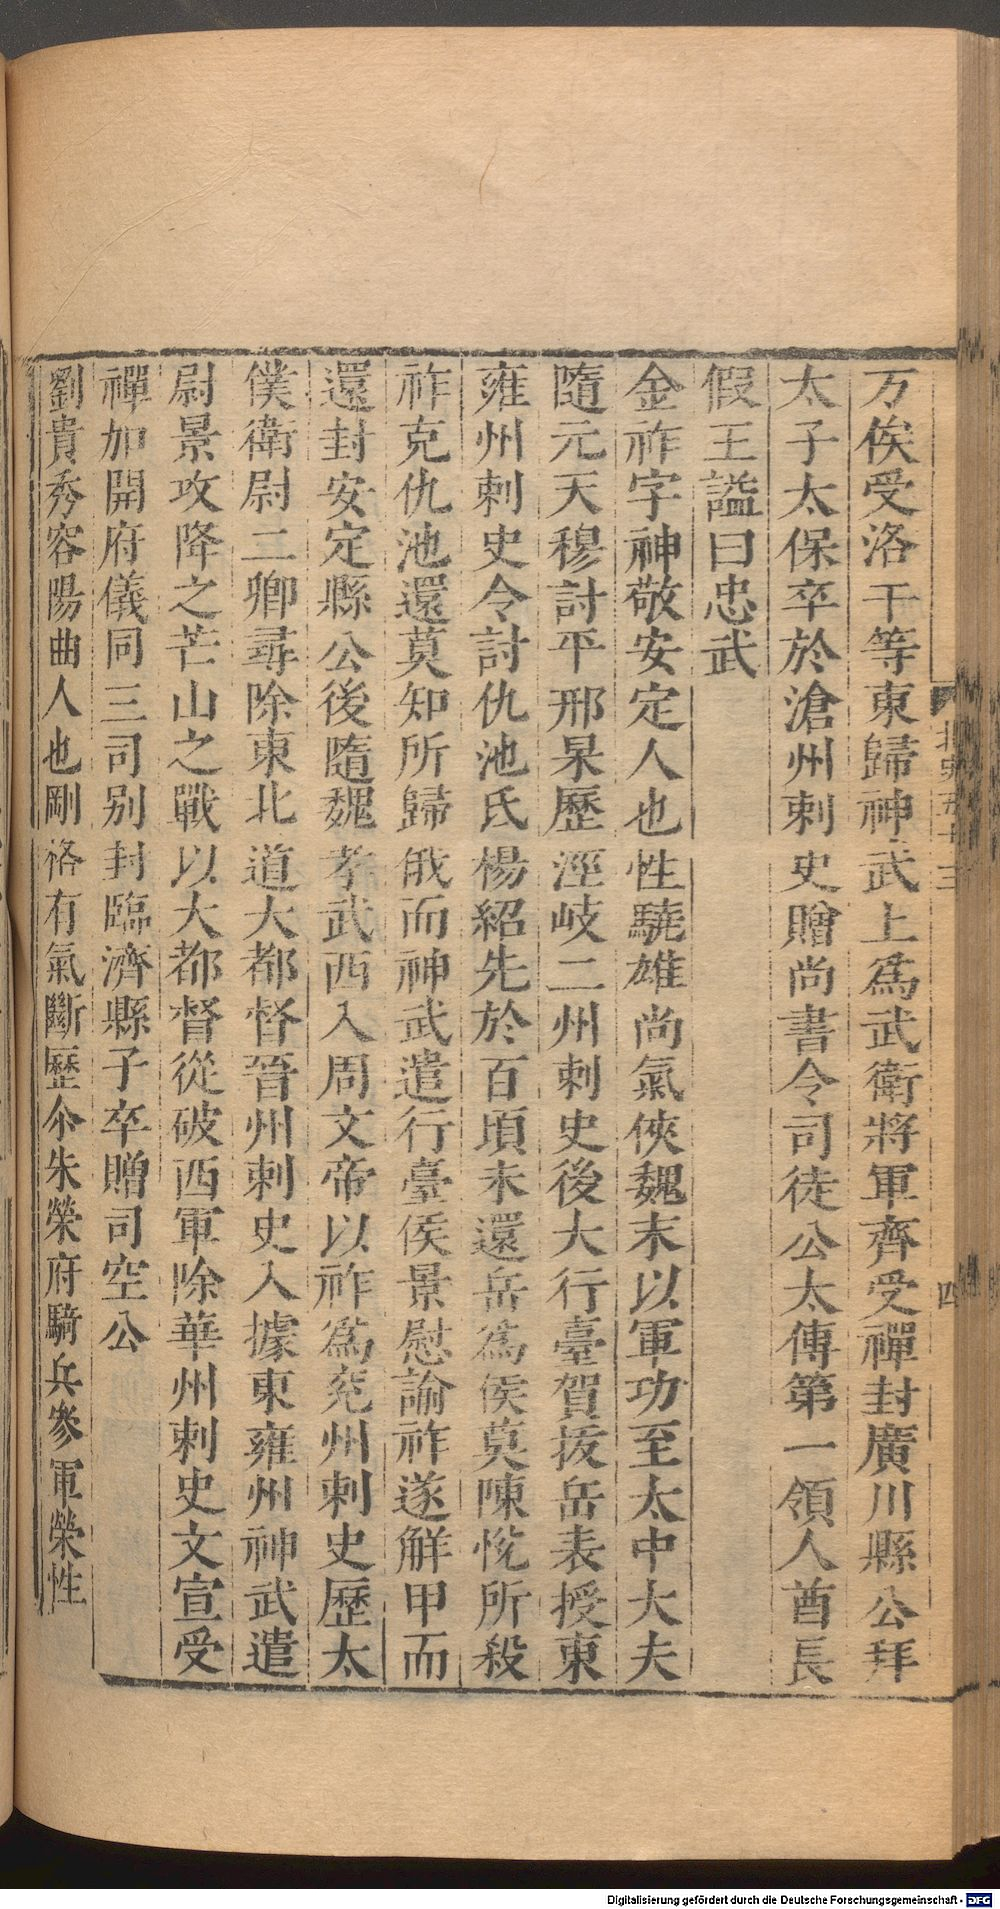 万俟受洛干等東歸神武上爲武衛將軍齊受禪封廣川縣公拜
太子太保卒於滄州刺史贈尚書令司徒公太傅第一領人酋長
假王謚曰忠武
金祚字神敬安定人也性驍雄尚氣俠魏末以軍功至太中大夫
隨元天穆討平邢杲歷涇岐二州刺史後大行臺賀拔岳表授東
雍州刺史令討仇池氐楊紹先於百頃未還岳爲侯莫陳悅所殺
祚克仇池還莫知所歸俄而神武遣行臺侯景慰諭祚遂解甲而
還封安定縣公後隨魏孝武西入周文帝以祚爲兖州刺史歷太
僕衛尉二卿尋除東北道大都督晉州刺史入據東雍州神武遣
尉景攻降之芒山之戰以大都督從破西軍除華州刺史文宣受
禪加開府儀同三司别封臨濟縣子卒贈司空公
劉貴秀容陽曲人也剛格有氣斷歷尒朱榮府騎兵參軍榮性
北史五十三
四
Digitalisierung gefördert durch die Deutsche Forschungsgemeinschaft - DFG